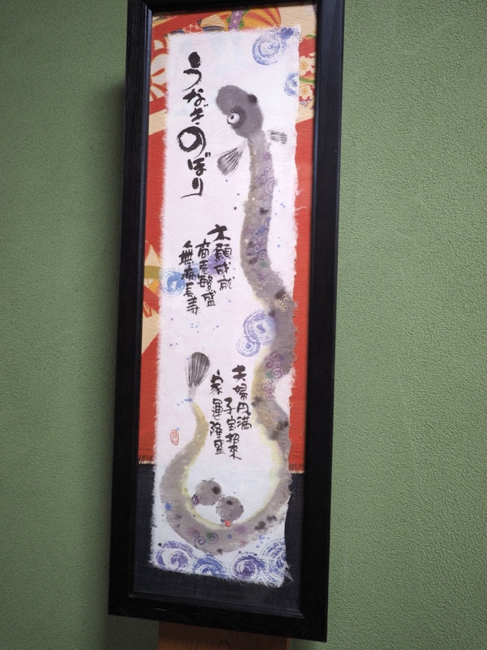 うなぎのぼり
大願成就
商売繁盛
無病長寿
夫婦円満
子宝招来
家運隆盛